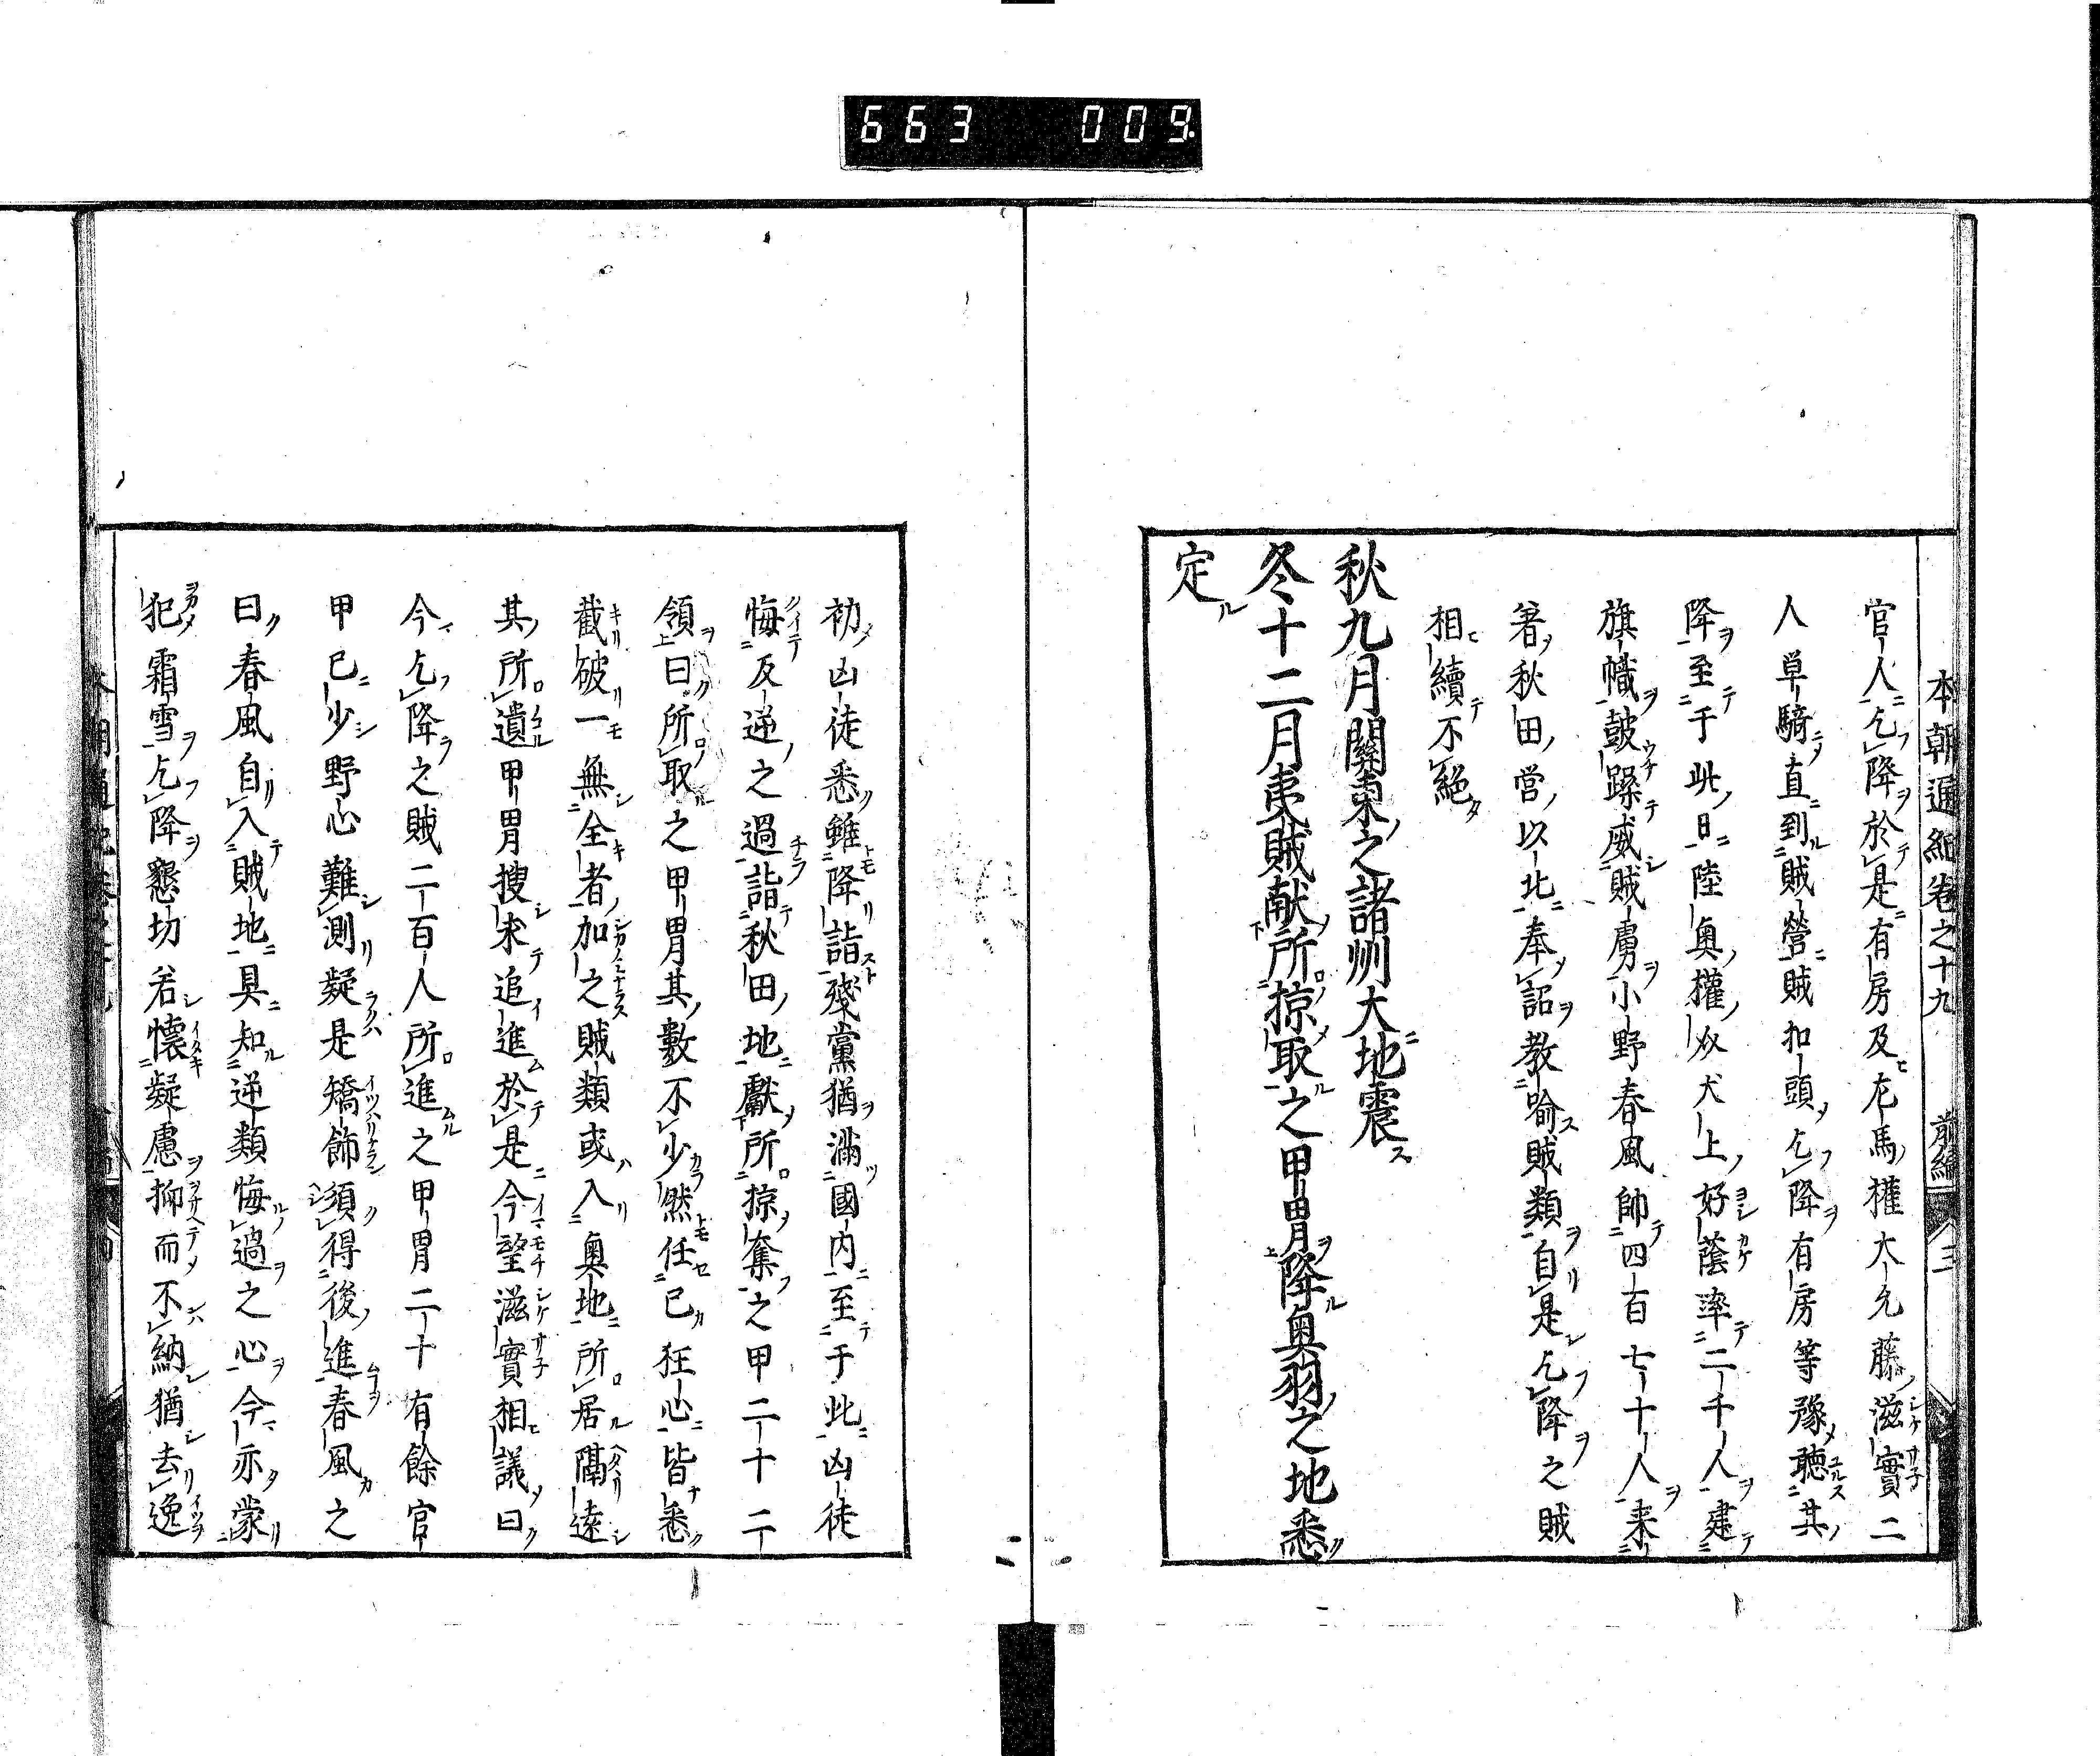 663 009
本朝通紀卷之十九 前編 三
官人乞降於是有房及左馬權大允藤滋實二
人単騎直到賊營賊扣頭乞降有房等豫聽其
降至于此日陸奥權从犬上好蔭率二千人建
旗幟鼓躁威賊虜小野春風帥四百七十人来
着秋田営以北奉詔教喻賊類自是乞降之賊
相續不絶
秋九月關東之諸州大地震
冬十二月夷賊献所掠取之甲冑降奥羽之地悉
定
初凶徒悉雖降詣殘黨猶滿國内至于此凶徒
悔及逆之過詣秋田地獻所掠奪之甲二十二
領曰所取之甲冑其數不少然任己狂心皆悉
截破一無全者加之賊類或入奥地所居隔遠
其所遺甲冑搜求追進於是今望滋實相議曰
今乞降之賊二百人所進之甲冑二十有餘官
甲已少野心難測疑是矯飾須得後進春風之
曰春風自入賊地具知逆類悔過之心今亦蒙
犯霜雪乞降懇切若懷疑慮抑而不納猶去逸